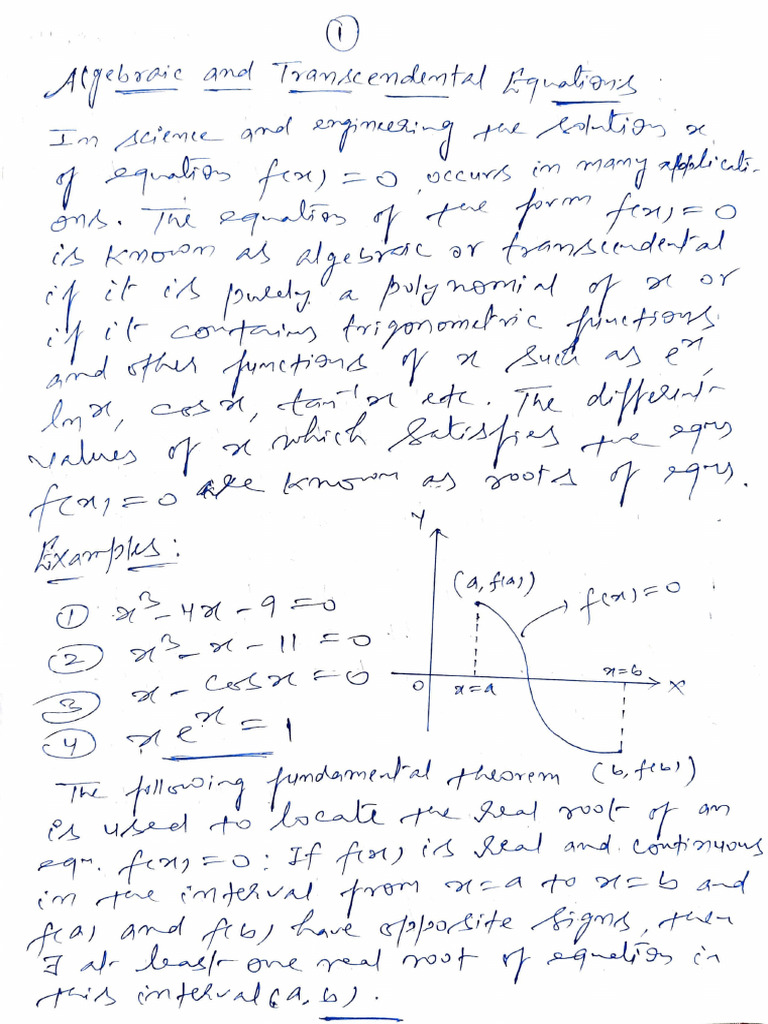 1
Algebraic and Transcendental Equations:
In science and engineering the solution x
of equation f(x) = 0, occurs in many applicati-
ons. The equation of the form f(x) = 0
is known as algebraic or transcendental
if it is purely a polynomial of x or
if it contains trigonometric functions
and other functions of x such as eˣ,
ln x, cos x, tan⁻¹x etc. The different
values of x which satisfies the eqns
f(x) = 0 are known as roots of eqns.
Examples:
① x³ - 4x - 9 = 0
② x³ - x - 11 = 0
③ x - cos x = 0
④ x eˣ = 1
Y
(a, f(a))
f(x) = 0
x=b
O x=a X
(b, f(b))
The following fundamental theorem
is used to locate the real root of an
eqn. f(x) = 0: If f(x) is real and continuous
in the interval from x = a to x = b and
f(a) and f(b) have opposite signs, then
∃ at least one real root of equation in
this interval (a, b).